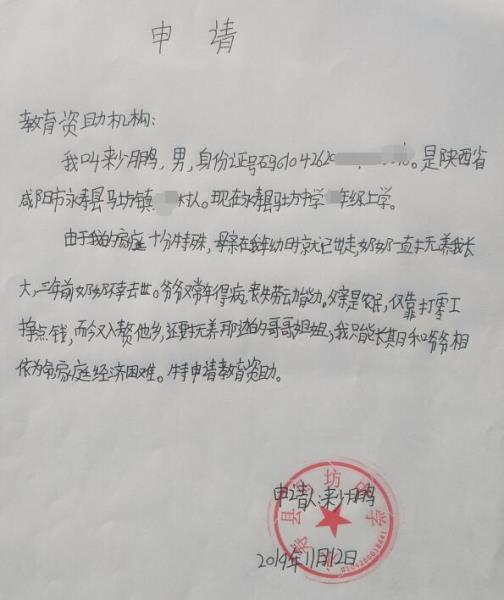 申 请
教育资助机构：
我叫来少鹏，男，身份证号码6104262。是陕西省
咸阳市永寿县马坊镇村人。现在永寿县马坊中学年级上学。
由于我的家庭十分特殊，母亲在我年幼时就已出走，奶奶一直抚养我长
大，三年前奶奶不幸去世。爷爷又常年得病，丧失劳动能力。父亲是农民，仅靠打零工
挣点钱，而今又入赘他乡，还要抚养那边的哥哥姐姐；我只能长期和爷爷相
依为命家庭经济困难。特申请教育资助。
申请人：来少鹏
2019年11月12日
县马坊中学